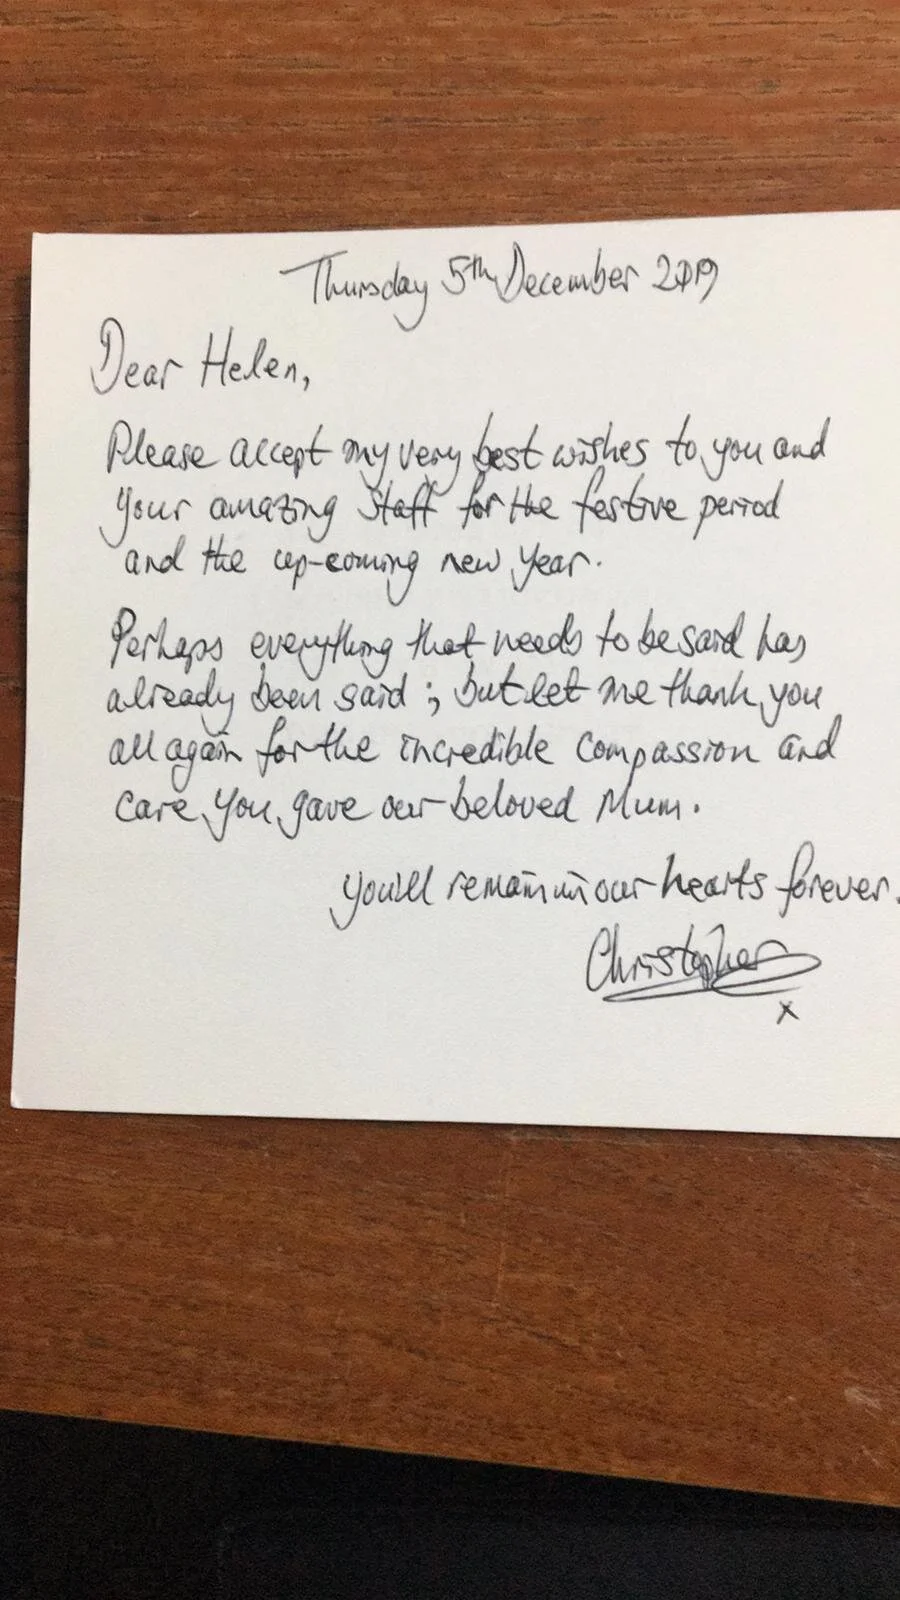 Thursday 5th December 2019
Dear Helen,
Please accept my very best wishes to you and
your amazing staff for the festive period
and the up-coming new year.
Perhaps everything that needs to be said has
already been said; but let me thank you
all again for the incredible compassion and
care you gave our beloved Mum.
You'll remain in our hearts forever.
Christopher
x